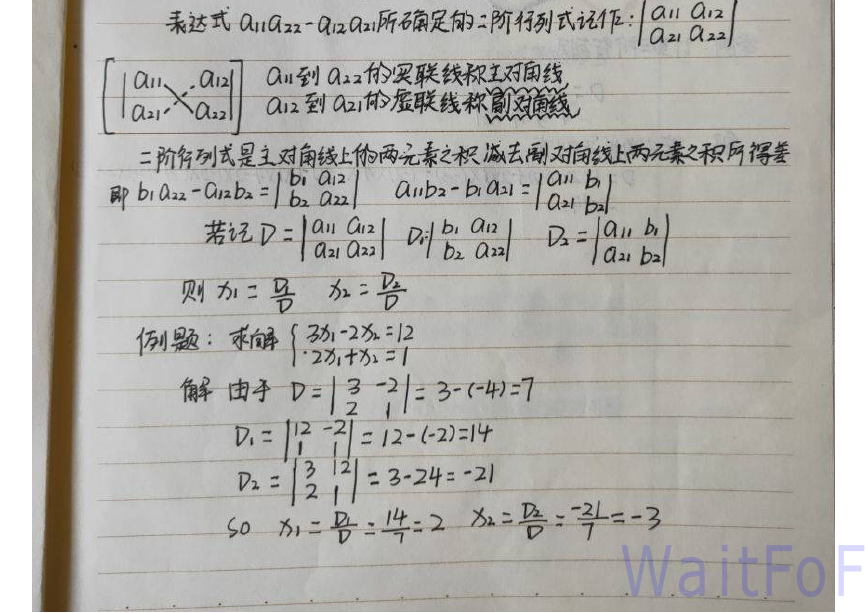 表达式 a11a22-a12a21所确定的二阶行列式记作:|a11 a12
a21 a22|
|a11 a12|
a21 a22| a11到a22的实联线称主对角线
a12到a21的虚联线称副对角线
二阶行列式是主对角线上的两元素之积减去副对角线上两元素之积所得差
即 b1a22-a12b2=|b1 a12
b2 a22| a11b2-b1a21=|a11 b1
a21 b2|
若记 D=|a11 a12
a21 a22| D1|b1 a12
b2 a22| D2=|a11 b1
a21 b2|
则 x1=D1/D x2=D2/D
例题: 求解{3x1-2x2=12
2x1+x2=1
解 由于 D=|3 -2
2 1|=3-(-4)=7
D1=|12 -2
1 1|=12-(-2)=14
D2=|3 12
2 1|=3-24=-21
so x1=D1/D=14/7=2 x2=D2/D=-21/7=-3
WaitFoF